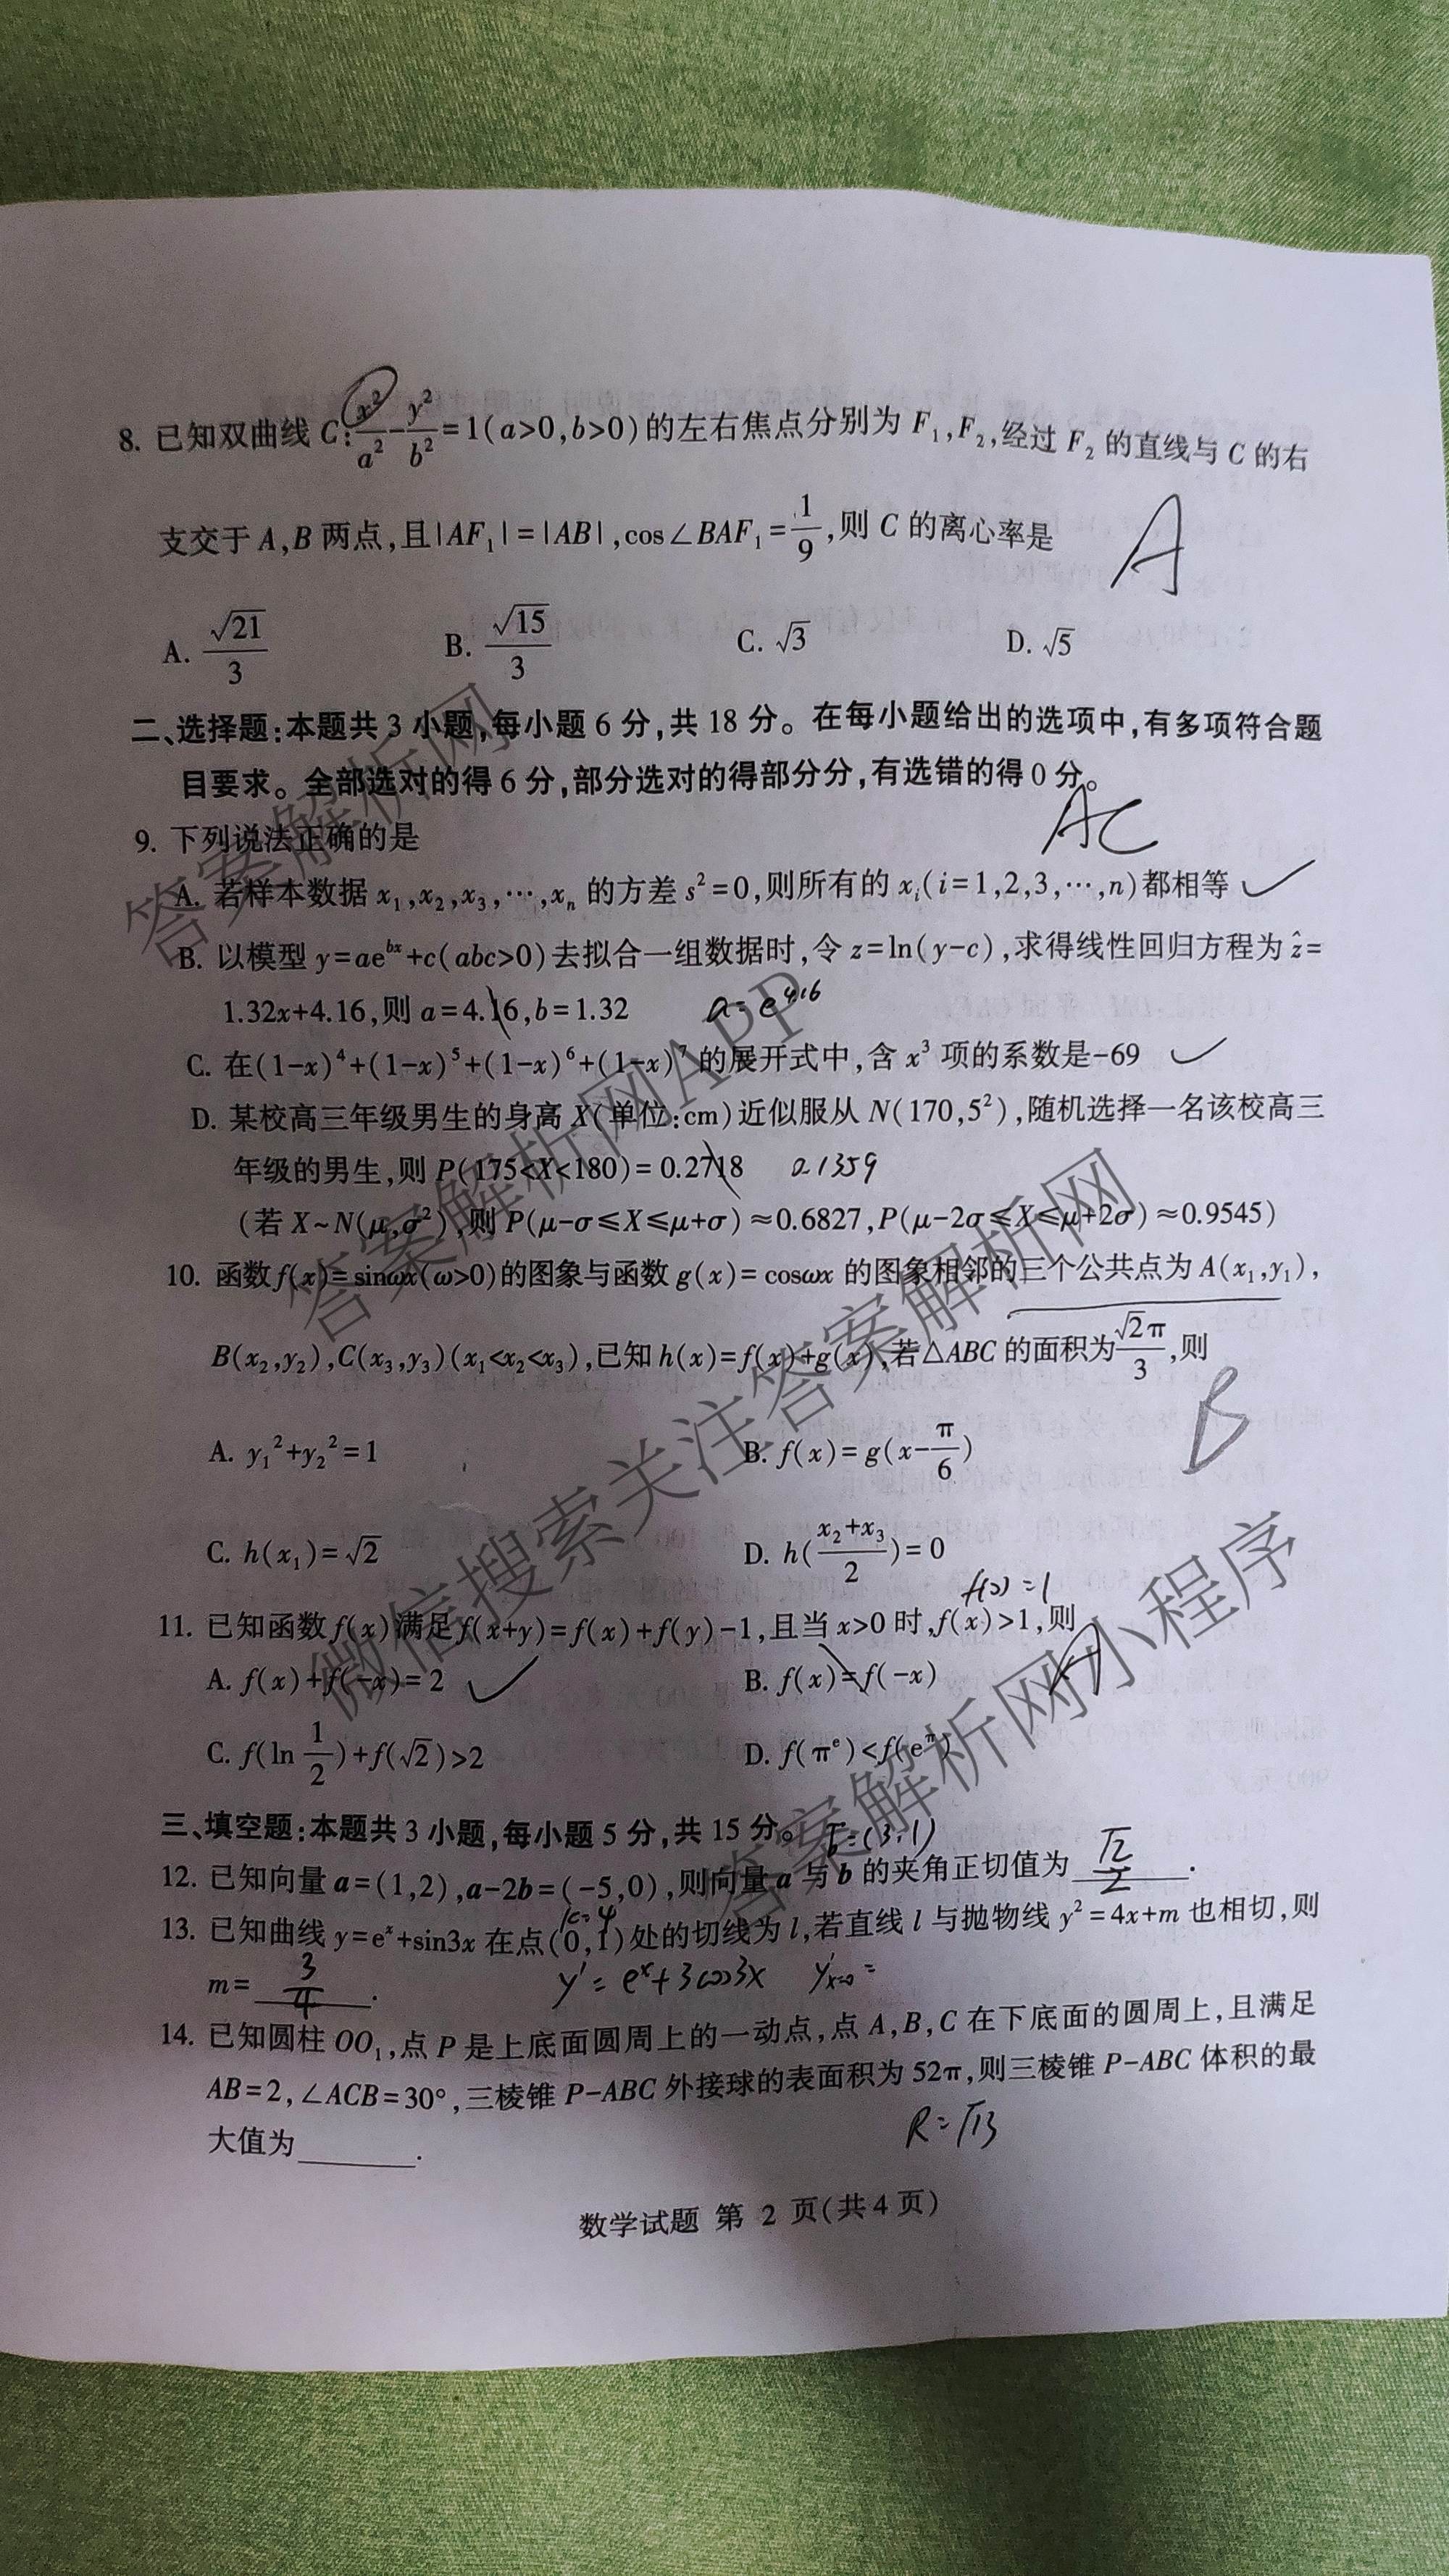 8. 已知双曲线 C:x²/a²-y²/b²=1(a>0,b>0)的左右焦点分别为 F₁,F₂,经过 F₂ 的直线与 C 的右
支交于 A,B 两点,且|AF₁|=|AB|,cos∠BAF₁=1/9,则 C 的离心率是
A
A. √21/3 B. √15/3 C. √3 D. √5
二、选择题:本题共 3 小题,每小题 6 分,共 18 分。在每小题给出的选项中,有多项符合题
目要求。全部选对的得 6 分,部分选对的得部分分,有选错的得 0 分。
AC
9. 下列说法正确的是
A. 若样本数据 x₁,x₂,x₃,…,xₙ 的方差 s²=0,则所有的 xᵢ(i=1,2,3,…,n)都相等 ✓
B. 以模型 y=ae^{bx}+c(abc>0)去拟合一组数据时,令 z=ln(y-c),求得线性回归方程为 ẑ=
1.32x+4.16,则 a=4.16,b=1.32 a=e^{4.16}
C. 在(1-x)⁴+(1-x)⁵+(1-x)⁶+(1-x)⁷ 的展开式中,含 x³ 项的系数是-69 ✓
D. 某校高三年级男生的身高 X(单位:cm)近似服从 N(170,5²),随机选择一名该校高三
年级的男生,则 P(175<X<180)=0.2718 0.1359
(若 X~N(μ,σ²),则 P(μ-σ≤X≤μ+σ)≈0.6827,P(μ-2σ≤X≤μ+2σ)≈0.9545)
10. 函数 f(x)=sinωx(ω>0)的图象与函数 g(x)=cosωx 的图象相邻的三个公共点为 A(x₁,y₁),
B(x₂,y₂),C(x₃,y₃)(x₁<x₂<x₃),已知 h(x)=f(x)+g(x),若△ABC 的面积为√2π/3,则
B
A. y₁²+y₂²=1 B. f(x)=g(x-π/6)
C. h(x₁)=√2 D. h((x₂+x₃)/2)=0
f(0)=1
11. 已知函数 f(x)满足 f(x+y)=f(x)+f(y)-1,且当 x>0 时,f(x)>1,则
A
A. f(x)+f(-x)=2 ✓ B. f(x)=f(-x)
C. f(ln 1/2)+f(√2)>2 D. f(π^e)<f(e^π)
三、填空题:本题共 3 小题,每小题 5 分,共 15 分。 b=(3,1)
12. 已知向量 a=(1,2),a-2b=(-5,0),则向量 a 与 b 的夹角正切值为 √2/2 .
k=4
13. 已知曲线 y=e^x+sin3x 在点(0,1)处的切线为 l,若直线 l 与抛物线 y²=4x+m 也相切,则
m= 3/4 . y'=e^x+3cos3x y'x=0=
14. 已知圆柱 OO₁,点 P 是上底面圆周上的一动点,点 A,B,C 在下底面的圆周上,且满足
AB=2,∠ACB=30°,三棱锥 P-ABC 外接球的表面积为 52π,则三棱锥 P-ABC 体积的最
大值为______.
R=√13
数学试题 第 2 页(共 4 页)
答案解析网
答案解析网APP
微信搜索关注答案解析网
答案解析网小程序